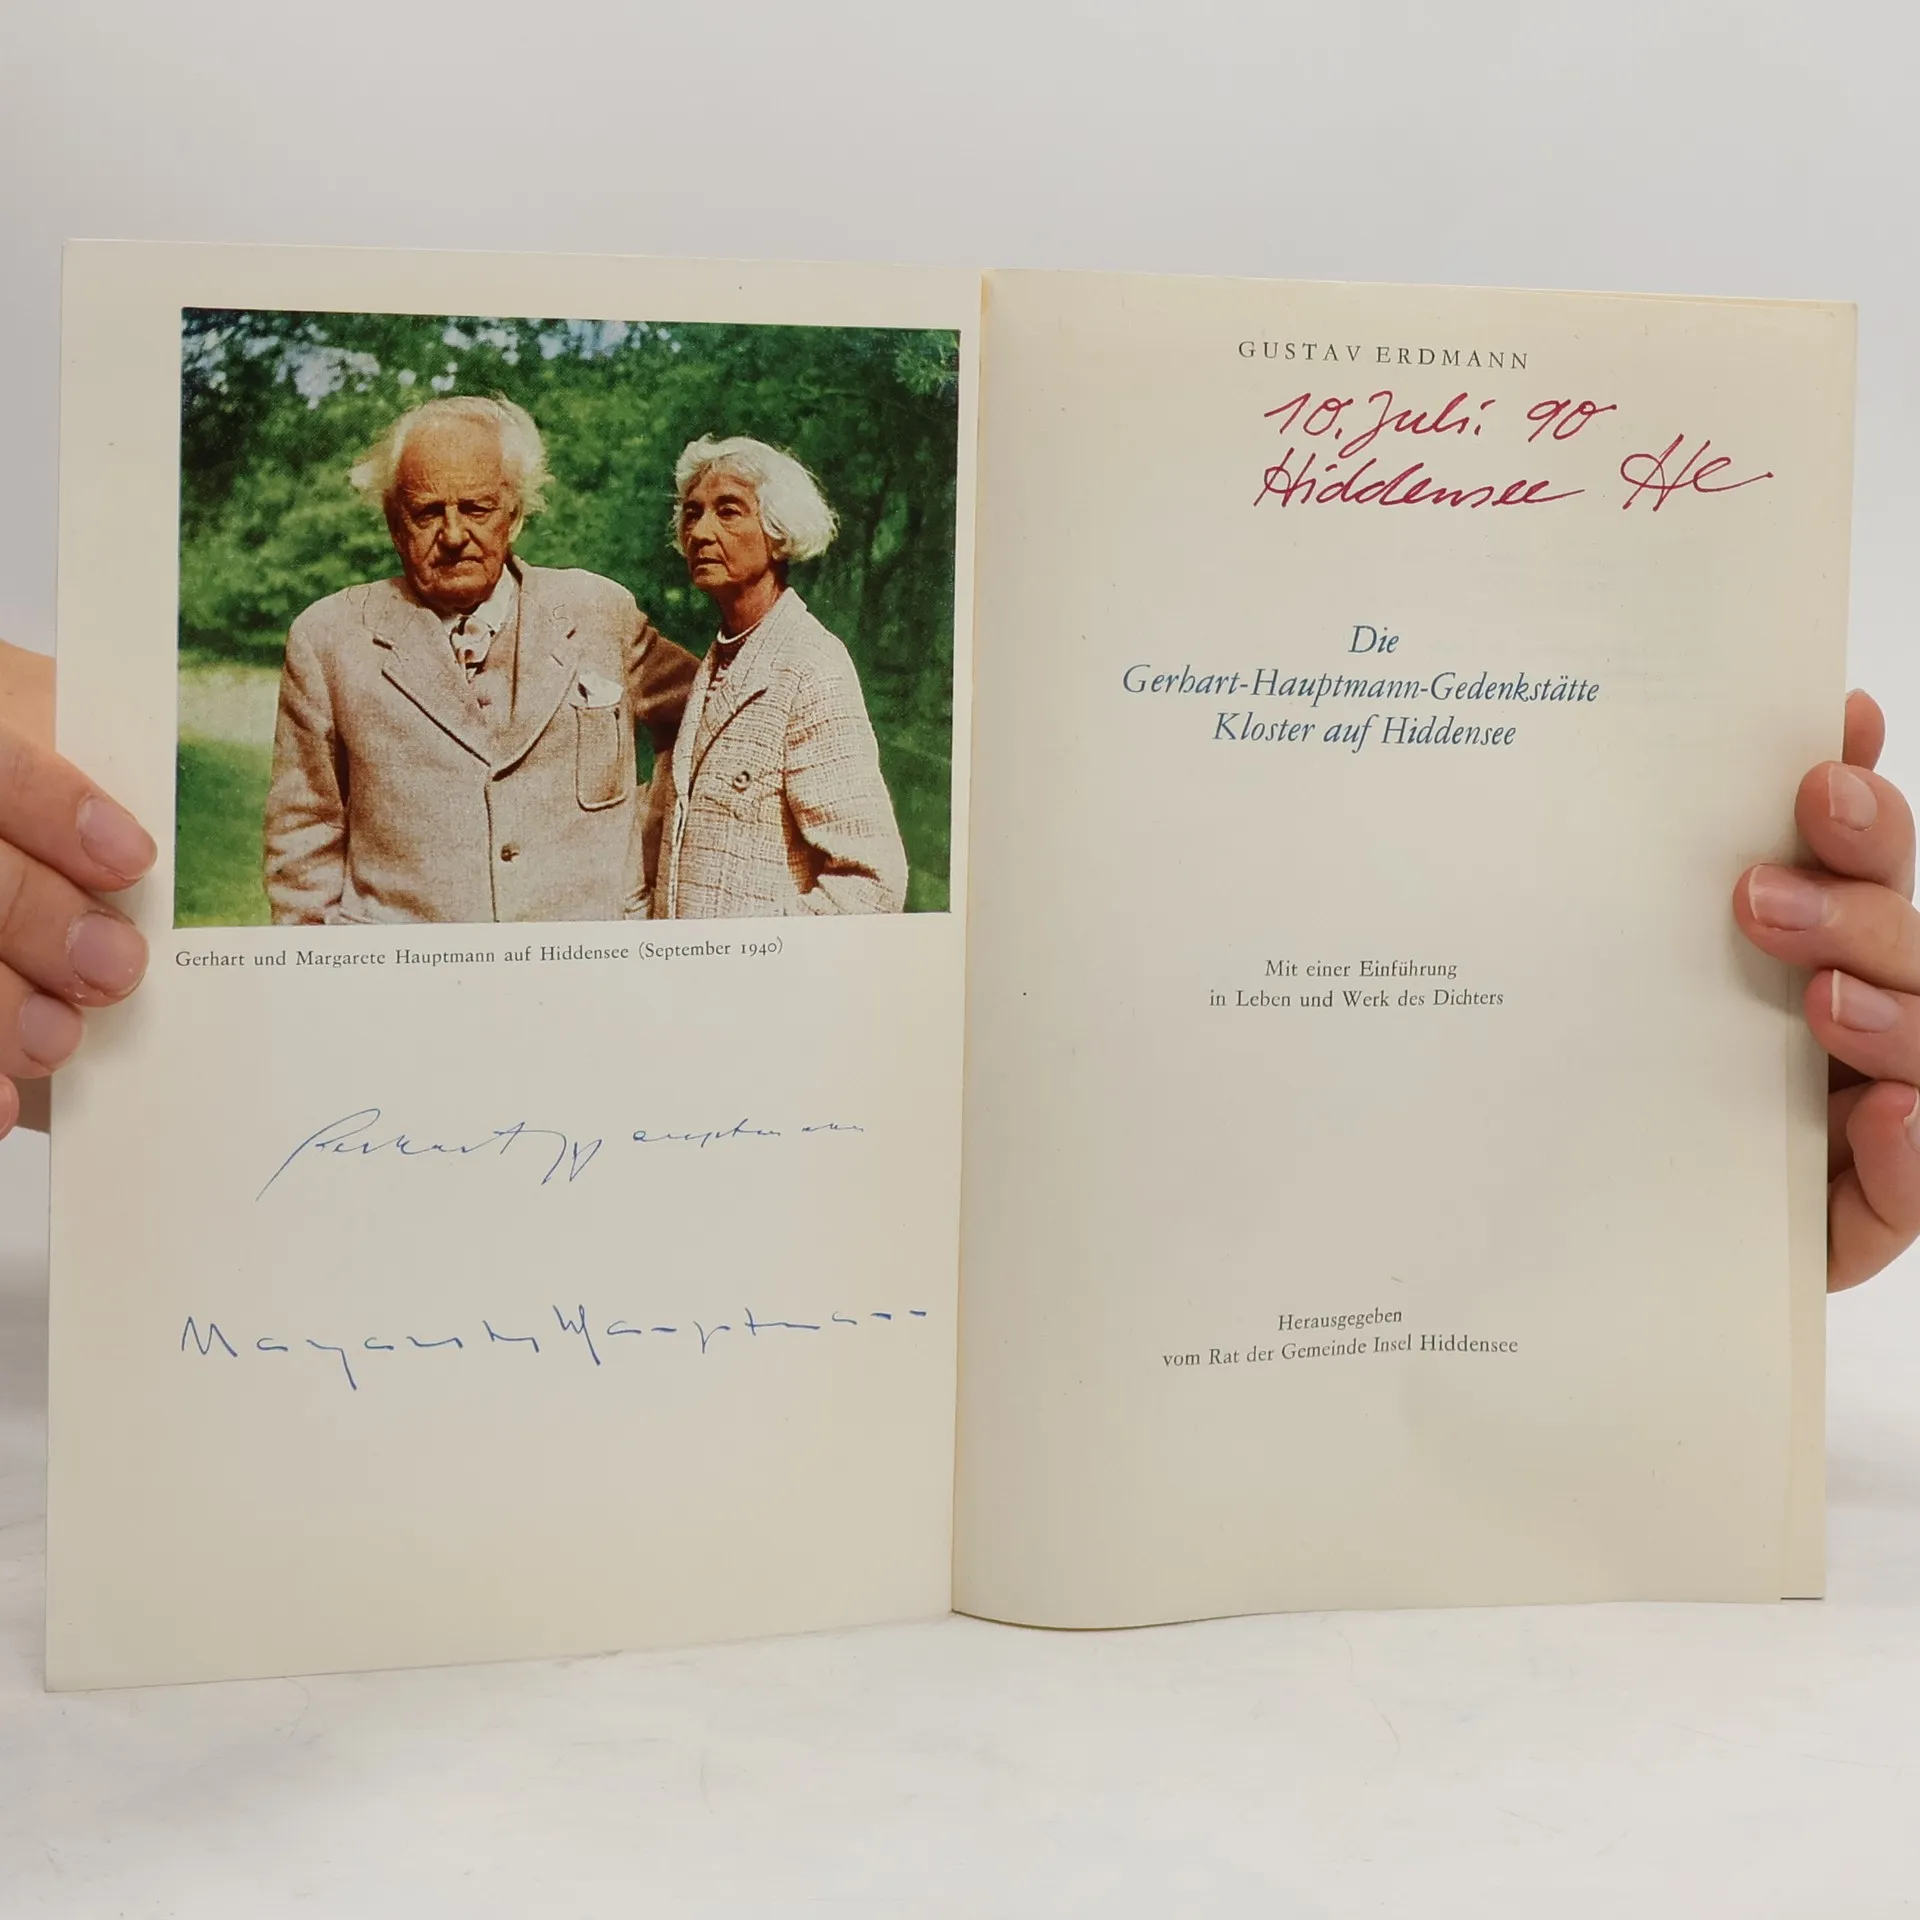 Gerhart und Margarete Hauptmann auf Hiddensee (September 1940)
Gerhart Hauptmann
Margarete Hauptmann
GUSTAV ERDMANN
10. Juli. 90
Hiddensee He
Die
Gerhart-Hauptmann-Gedenkstätte
Kloster auf Hiddensee
Mit einer Einführung
in Leben und Werk des Dichters
Herausgegeben
vom Rat der Gemeinde Insel Hiddensee